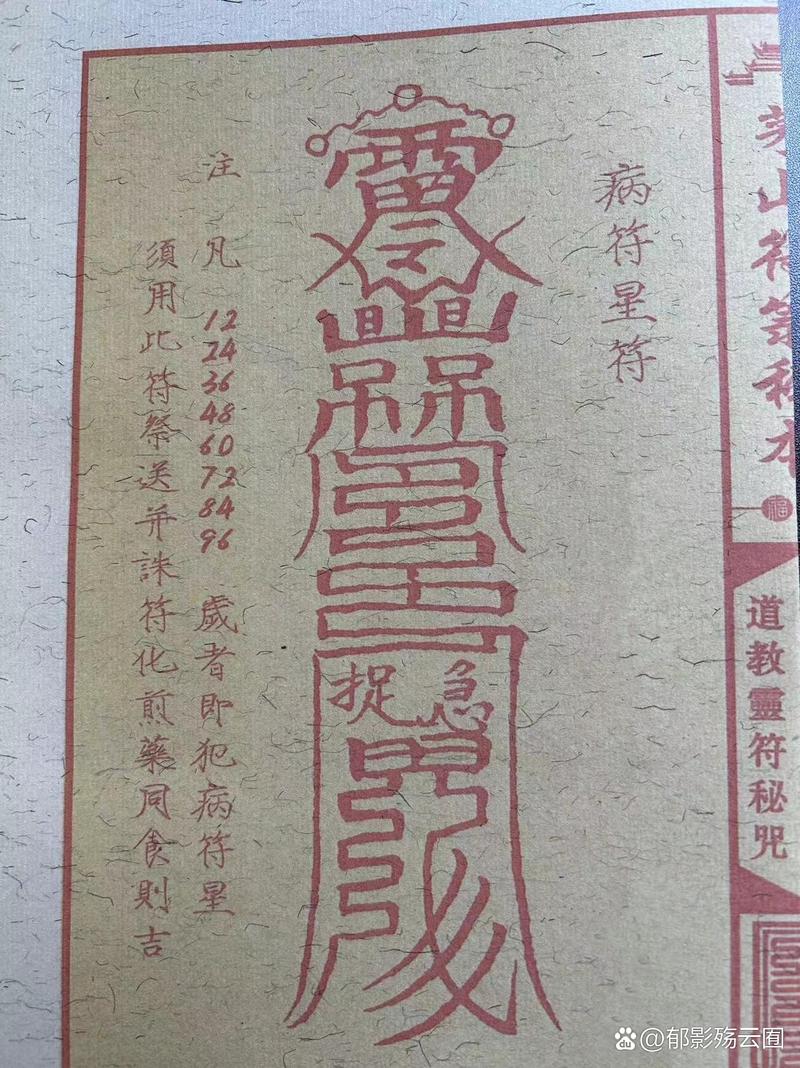 茅山符箓秘本
福
道教靈符秘咒
病符星符
雷令
急捉
注 凡 12 24 36 48 60 72 84 96 歲者即犯病符星
須用此符祭送并誅符化煎藥同食則吉
Baidu @郁影殇云囿